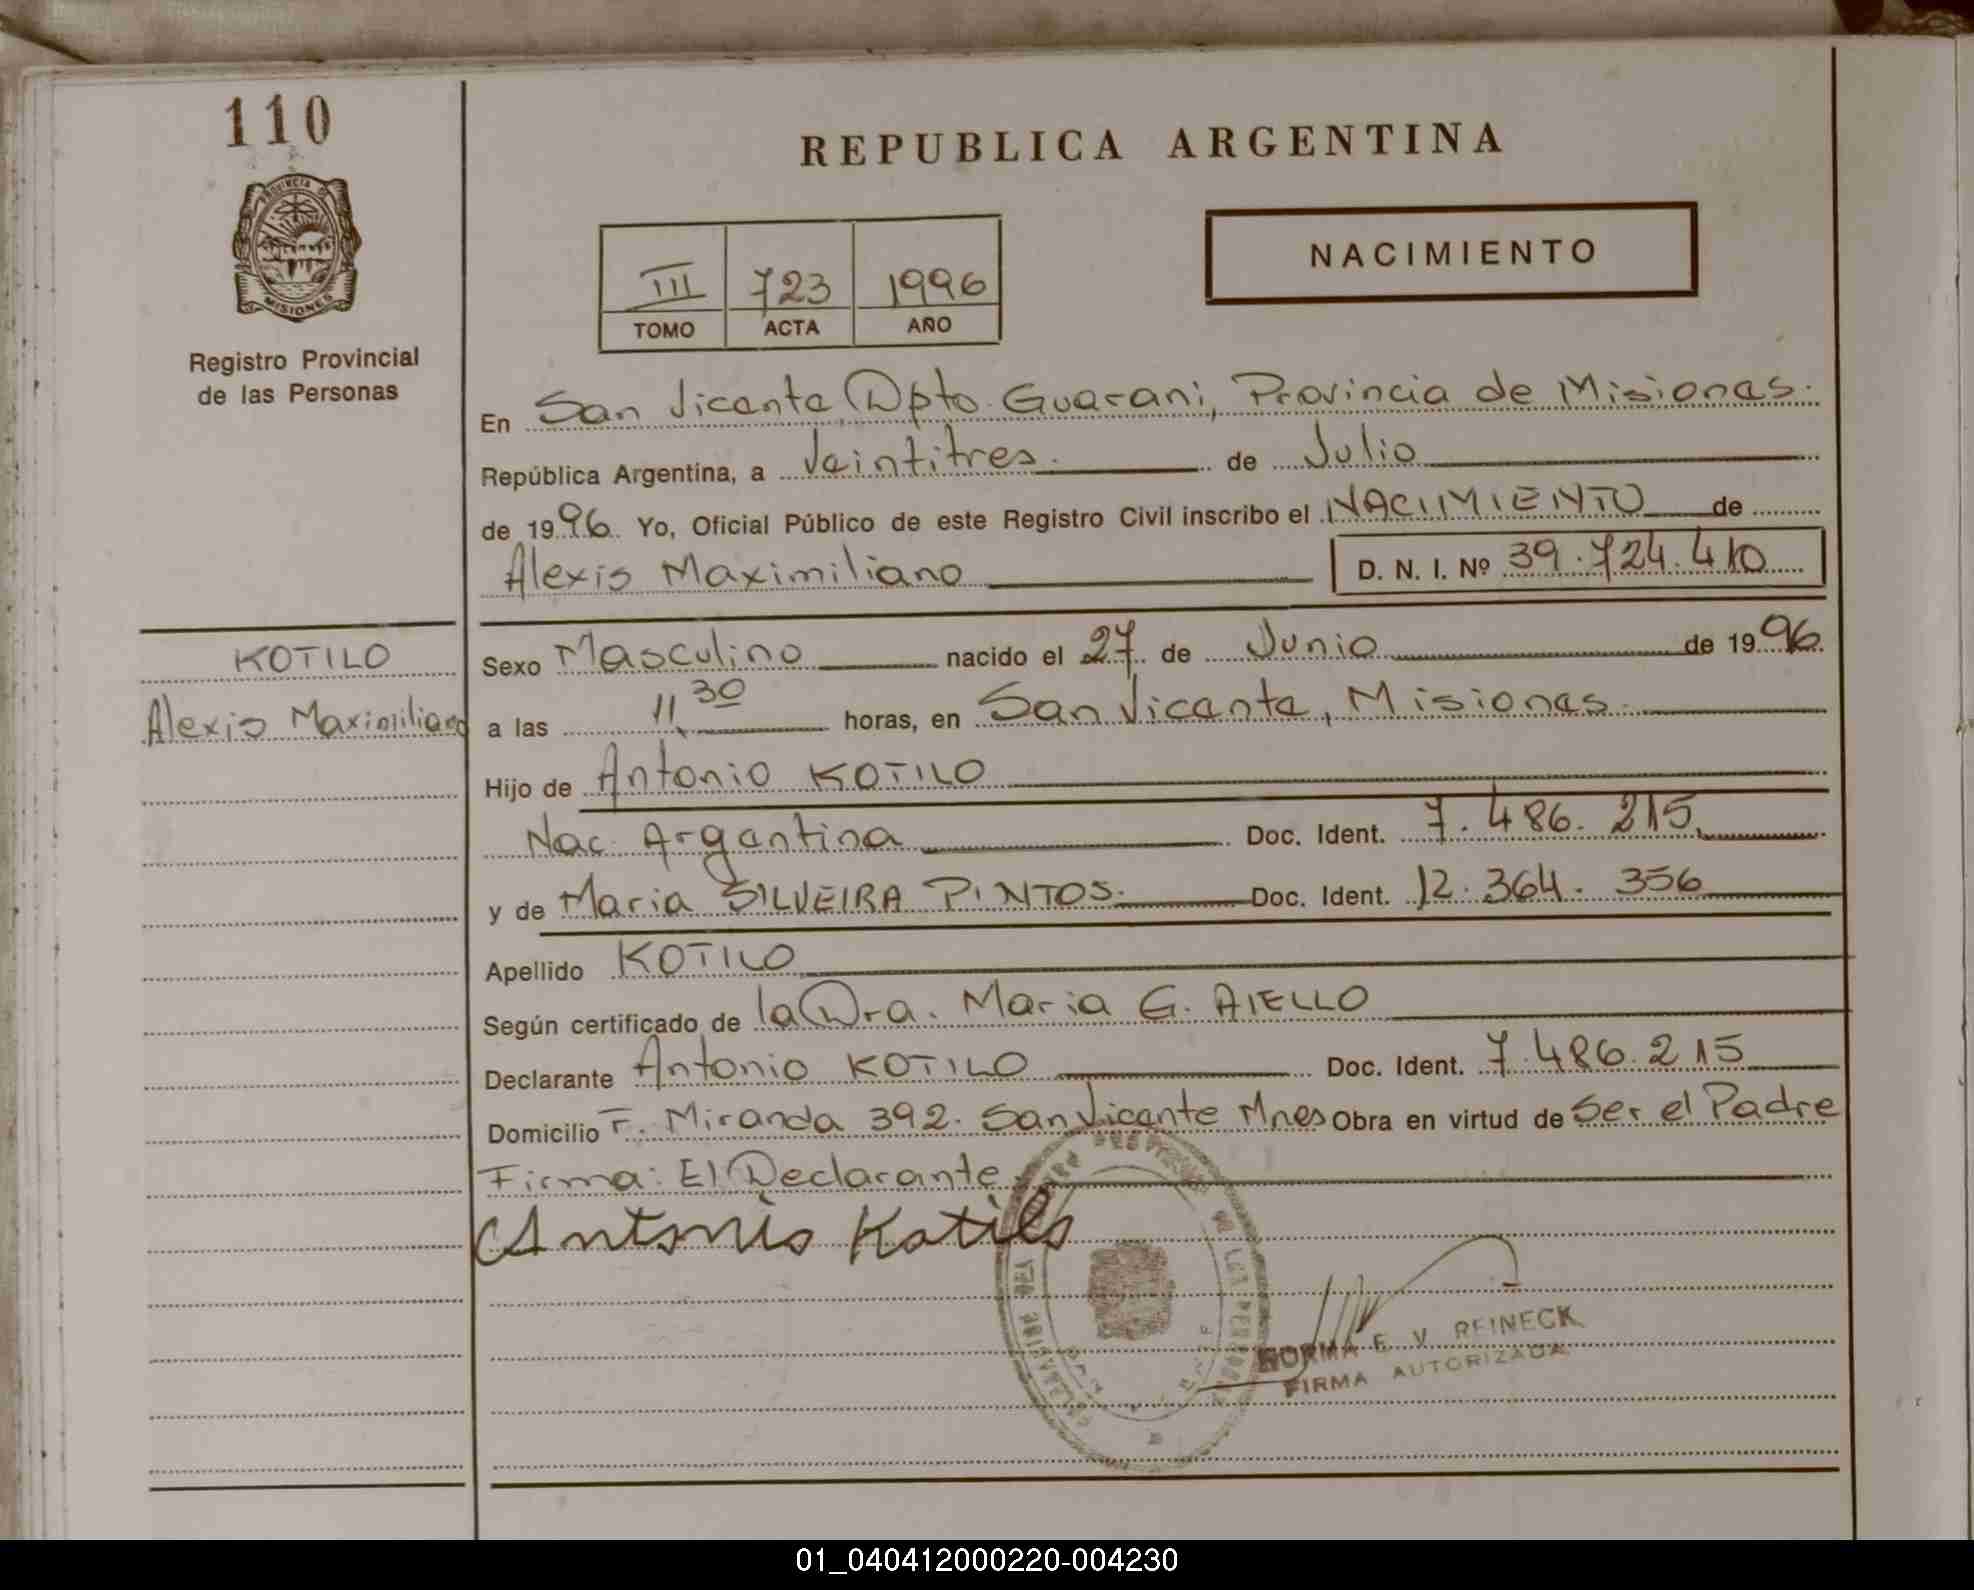 110
REPUBLICA ARGENTINA
PROVINCIA DE
MISIONES
NACIMIENTO
III 723 1996
TOMO ACTA AÑO
Registro Provincial
de las Personas
En San Vicente Dpto Guarani, Provincia de Misiones.
República Argentina, a Veintitres. de Julio
de 1996 Yo, Oficial Público de este Registro Civil inscribo el NACIMIENTO de
Alexis Maximiliano D. N. I. Nº 39.724.410
KOTILO
Alexis Maximiliano
Sexo Masculino nacido el 27 de Junio de 1996.
a las 11,30 horas, en San Vicente, Misiones.
Hijo de Antonio KOTILO
Nac. Argentina Doc. Ident. 7.486.215
y de Maria SILVEIRA PINTOS. Doc. Ident. 12.364.356
Apellido KOTILO
Según certificado de la Dra. Maria G. AIELLO
Declarante Antonio KOTILO Doc. Ident. 7.486.215
Domicilio F. Miranda 392. San Vicente Mnes Obra en virtud de Ser el Padre
Firma: El Declarante
Antonio Kotilo
NORMA E. V. REINECK
FIRMA AUTORIZADA
01_040412000220-004230